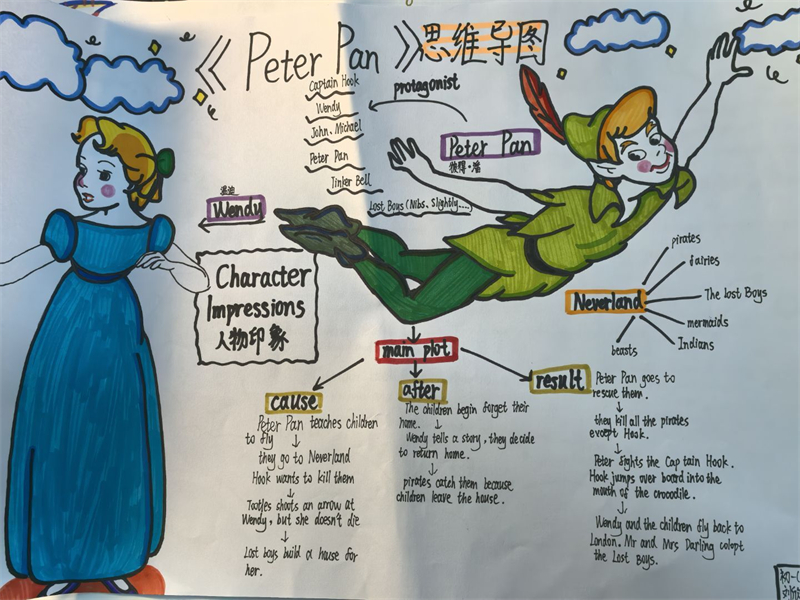 《Peter Pan》思维导图
protagonist
Captain Hook
Wendy
John、Michael
Peter Pan
Tinker Bell
Lost Boys (Nibs、Slightly....)
Peter Pan
彼得·潘
温迪
Wendy
Character
Impressions
人物印象
Neverland
pirates
fairies
The lost Boys
mermaids
Indians
beasts
main plot
cause
Peter Pan teaches children
to fly ↓
they go to Neverland
Hook wants to kill them
↓
Tootles shoots an arrow at
Wendy, but she doesn't die
↓
Lost boys build a house for
her.
after
The children begin forget their
home. ↓
Wendy tells a story, they decide
to return home.
↓
pirates catch them because
children leave the house.
result
Peter Pan goes to
rescue them.
↓
they kill all the pirates
except Hook.
↓
Peter fights the Captain Hook.
Hook jumps over board into the
mouth of the crocodile.
↓
Wendy and the children fly back to
London. Mr and Mrs Darling colopt
the Lost Boys.
初一